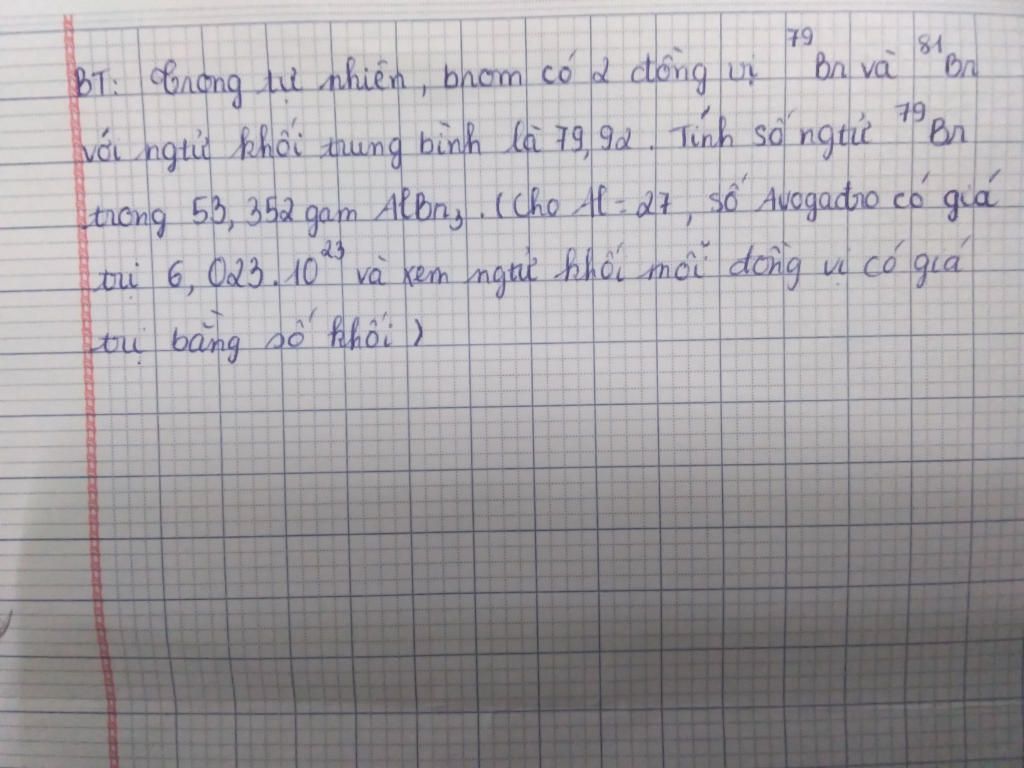 BT: Trong tự nhiên, brom có 2 đồng vị ⁷⁹Br và ⁸¹Br
với ngtử khối trung bình là 79,92. Tính số ngtử ⁷⁹Br
trong 53,352 gam AlBr₃. (Cho Al = 27, số Avogadro có giá
trị 6,023.10²³ và xem ngtử khối mỗi đồng vị có giá
trị bằng số khối)